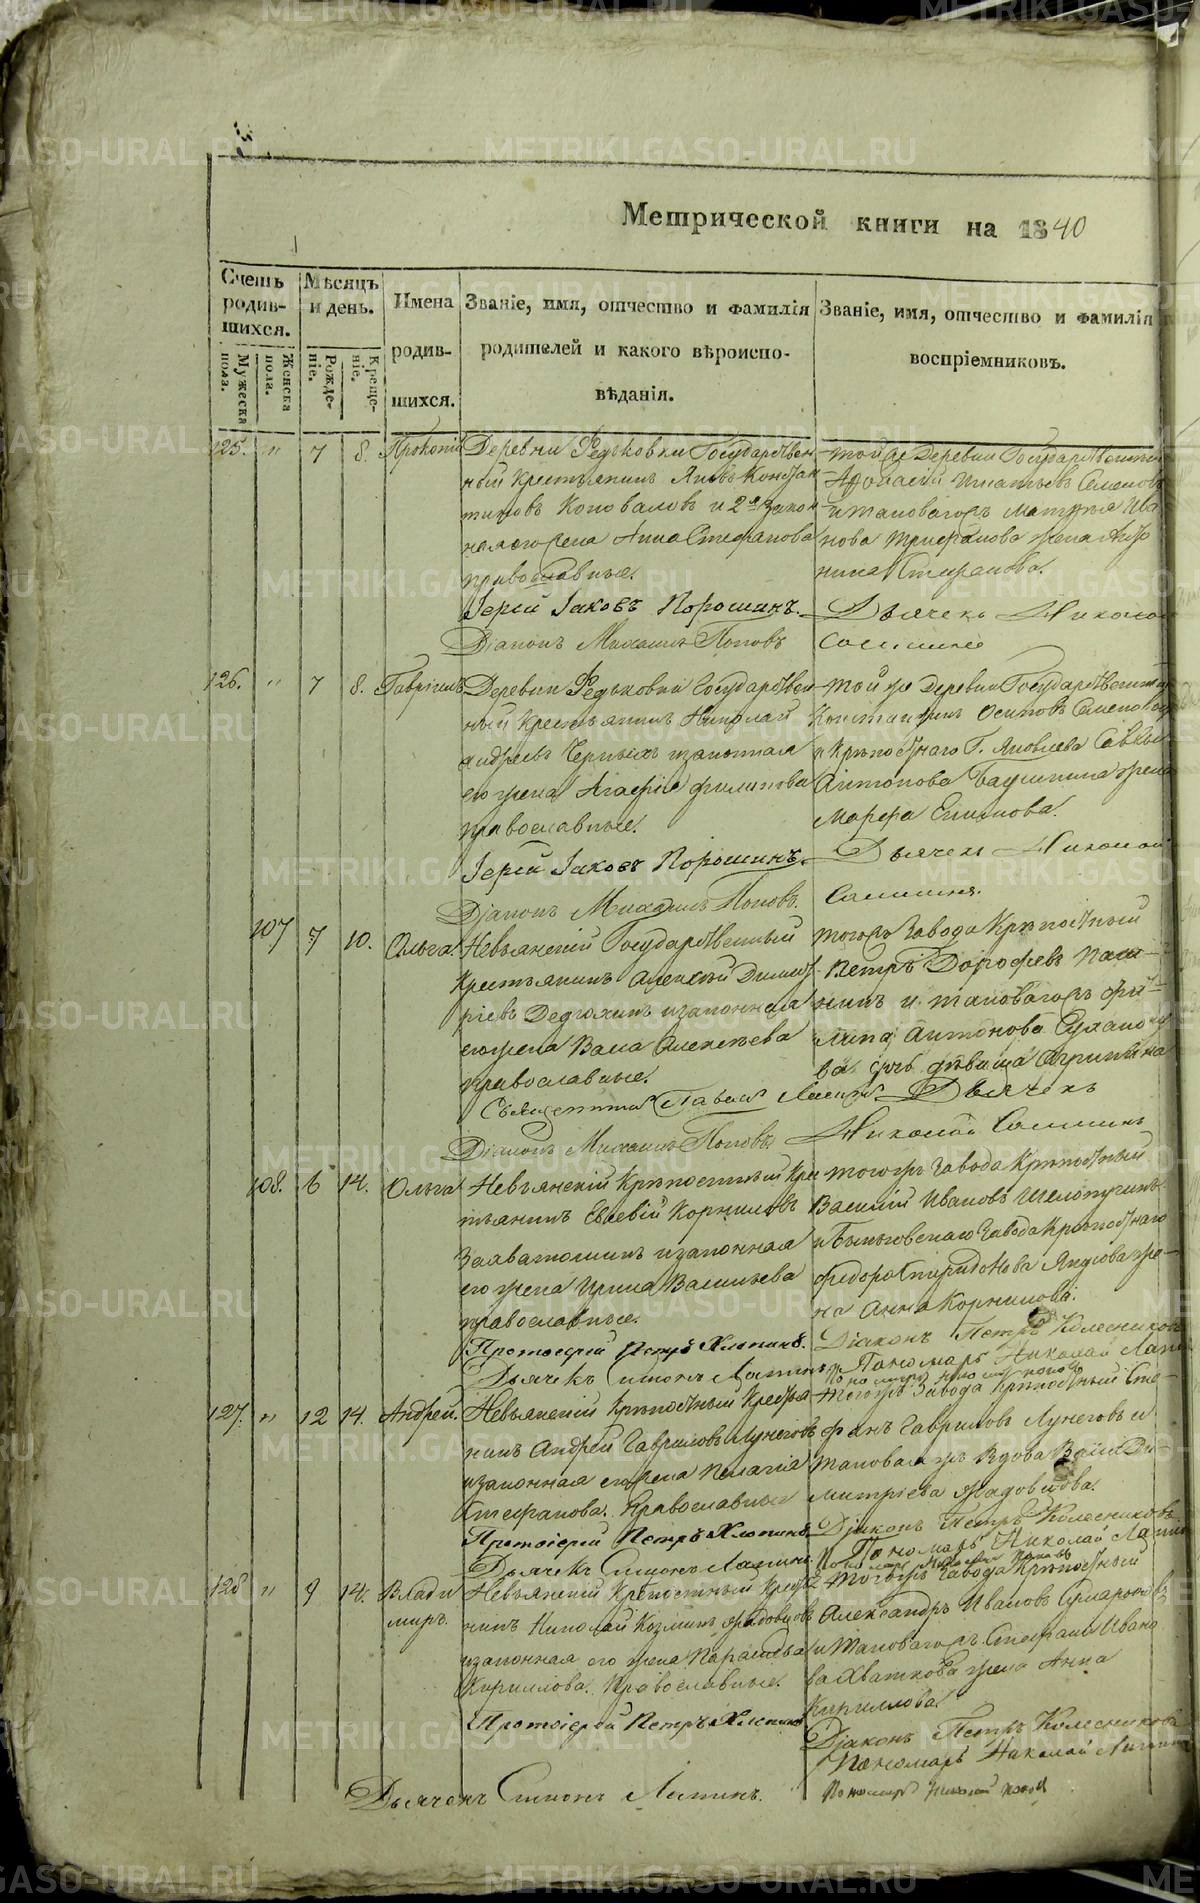 Метрической книги на 1840
Счетъ родив-шихся.
Мужеска пола.
Женска пола.
Мѣсяцъ и день.
Рожде-ніе.
Креще-ніе.
Имена родив-шихся.
Званіе, имя, отчество и фамилія
родителей и какого вѣроиспо-
вѣданія.
Званіе, имя, отчество и фамилія
воспріемниковъ.
125. " 7 8. Прокопій
Деревни Редьковки Государствен-
ный Крестьянинъ Яковъ Констан
тиновъ Коноваловъ и 2я закон
ная его жена Анна Стефанова
православные.
Іерей Іаковъ Порошинъ.
Діаконъ Михаилъ Поповъ
той же Деревни Государственный
Афонасій Игнатьевъ Семеновъ
и таковагожъ Матвея Ива
нова Трифанова жена
Стефанова.
Дьячекъ Николай
126. " 7 8. Гавріилъ
Деревни Редьковки Государствен
ный Крестьянинъ Николай
Андреевъ Черныхъ и законная
его жена Агафія Филипова
православные.
Іерей Іаковъ Порошинъ.
Діаконъ Михаилъ Поповъ.
той же Деревни Государственный
Константинъ Осиповъ Семеновъ
и Крѣпостнаго Г. Яковлева
Антонова жена
Марфа
Дьячекъ Николай
107 7 10. Ольга
Невьянскій Государственный
Крестьянинъ Алексѣй Димит
ріевъ Дедюхинъ и законная
его жена Васса Алексѣева
православные.
Священникъ Павелъ
Діаконъ Михаилъ Поповъ
тогожъ Завода Крѣпостный
Петръ Дорофѣевъ Паш-
нинъ и таковагожъ Фи-
липа Антонова Сухано
ва дочь дѣвица Агрипина
Дьячекъ
Николай
108. 6 14. Ольга
Невьянскій Крѣпостный Крес
тьянинъ Евсевій Корниловъ
Захватошинъ и законная
его жена Ирина Васильева
православные.
Протоіерей Петръ Хлопинъ.
Дьячекъ Симонъ Лапинъ
тогожъ Завода Крѣпостный
Василій Ивановъ Шелопугинъ
и Быньговскаго Завода Крѣпостнаго
Федора Спиридонова же-
на Анна Корнилова.
Діаконъ Петръ Колесниковъ
Пономарь Николай Лапин
127. " 12 14. Андрей.
Невьянскій Крѣпостный Крестья
нинъ Андрей Гавриловъ Лунеговъ
и законная его жена Пелагія
Стефанова. Православные
Протоіерей Петръ Хлопинъ
Дьячекъ Симонъ Лапинъ.
тогожъ Завода Крѣпостный Сте-
фанъ Гавриловъ Лунеговъ и
таковаяжъ Вдова Васса Ди-
митріева Жадовцова.
Діаконъ Петръ Колесниковъ.
Пономарь Николай Лапин
128 " 9 14. Влади
миръ.
Невьянскій Крѣпостный Кресть
нинъ Николай Козминъ Жадовцовъ
и законная его жена Параскева
Кирилова. Православные.
Протоіерей Петръ Хлопинъ
Дьячекъ Симонъ Лапинъ.
тогожъ Завода Крѣпостный
Александръ Ивановъ
и таковагожъ Стефана Ивано
ва Хваткова жена Анна
Кирилова
Діаконъ Петръ Колесниковъ
Пономарь Николай Лапин
Пономарь Николай Попов
METRIKI.GASO-URAL.RU